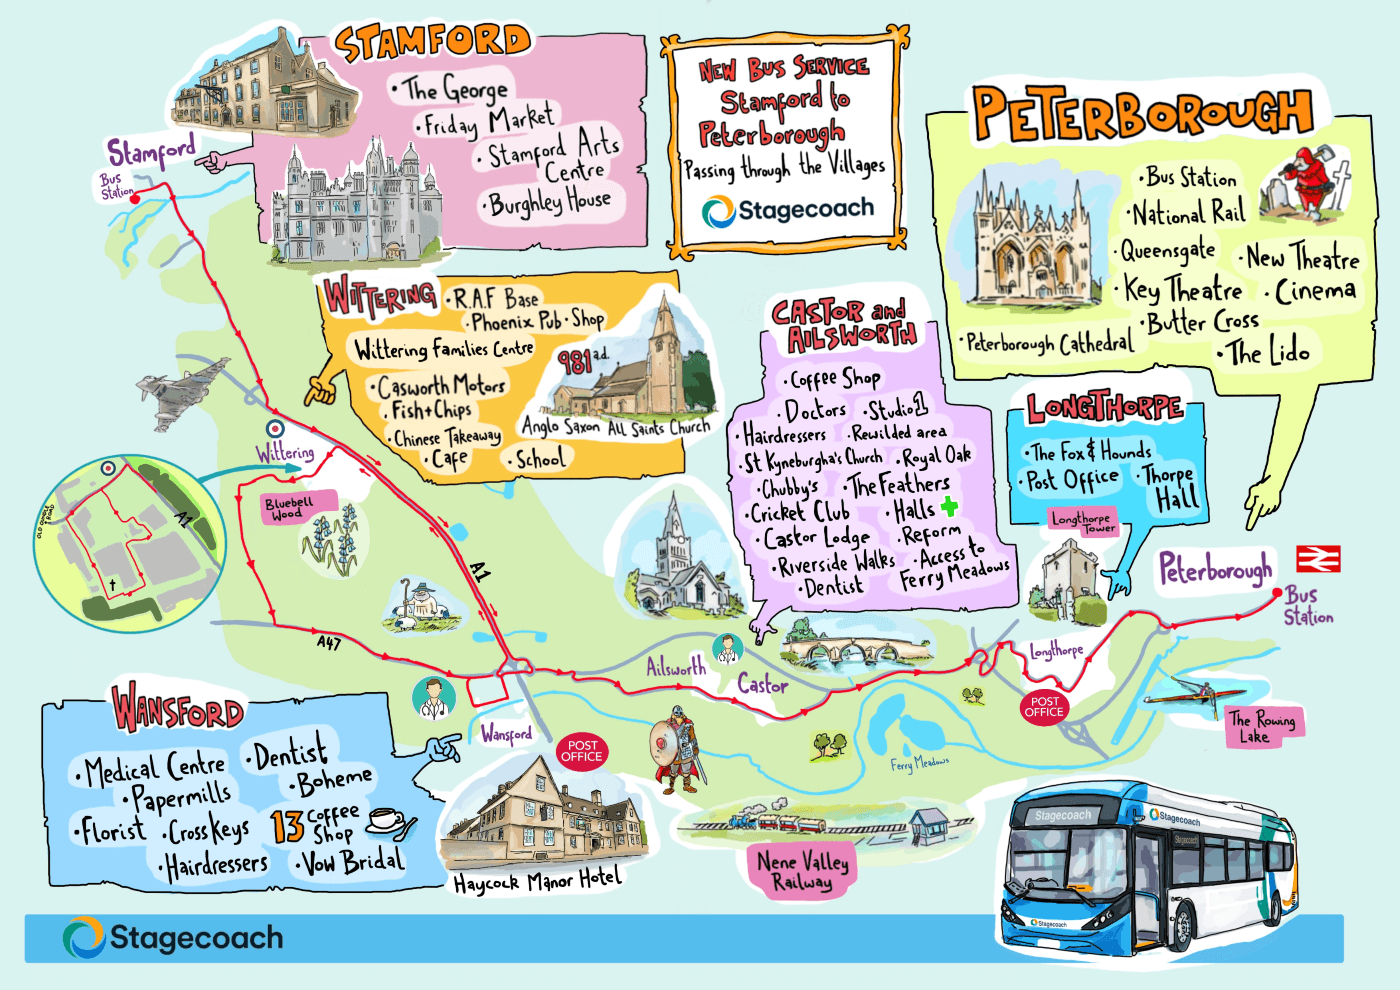 STAMFORD
• The George
• Friday Market
• Stamford Arts
Centre
• Burghley House
New Bus Service
Stamford to
Peterborough
Passing through the Villages
Stagecoach
PETERBOROUGH
• Bus Station
• National Rail
• Queensgate
• New Theatre
• Key Theatre
• Cinema
• Butter Cross
• Peterborough Cathedral
• The Lido
Stamford
Bus
Station
WITTERING
• R.A.F Base
• Phoenix Pub • Shop
Wittering Families Centre
• Casworth Motors
• Fish+Chips
• Chinese Takeaway
• Cafe
• School
981 a.d.
Anglo Saxon All Saints Church
CASTOR and
AILSWORTH
• Coffee Shop
• Doctors
• Studio 1
• Hairdressers
• Rewilded area
• St Kyneburgha's Church
• Royal Oak
• Chubby's
• The Feathers
• Cricket Club
• Halls +
• Castor Lodge
• Reform
• Riverside Walks
• Access to
Ferry Meadows
• Dentist
LONGTHORPE
• The Fox & Hounds
• Post Office
• Thorpe
Hall
Longthorpe
Tower
Peterborough
Bus
Station
Wittering
Bluebell
Wood
OLD OUNDLE
ROAD
A1
A1
A47
Ailsworth
Castor
Longthorpe
POST
OFFICE
The Rowing
Lake
Ferry Meadows
Wansford
POST
OFFICE
WANSFORD
• Medical Centre
• Dentist
• Papermills
• Boheme
• Florist
• Cross Keys
13 Coffee
Shop
• Hairdressers
• Vow Bridal
Haycock Manor Hotel
Nene Valley
Railway
Stagecoach
Stagecoach
Stagecoach
Stagecoach
Stagecoach